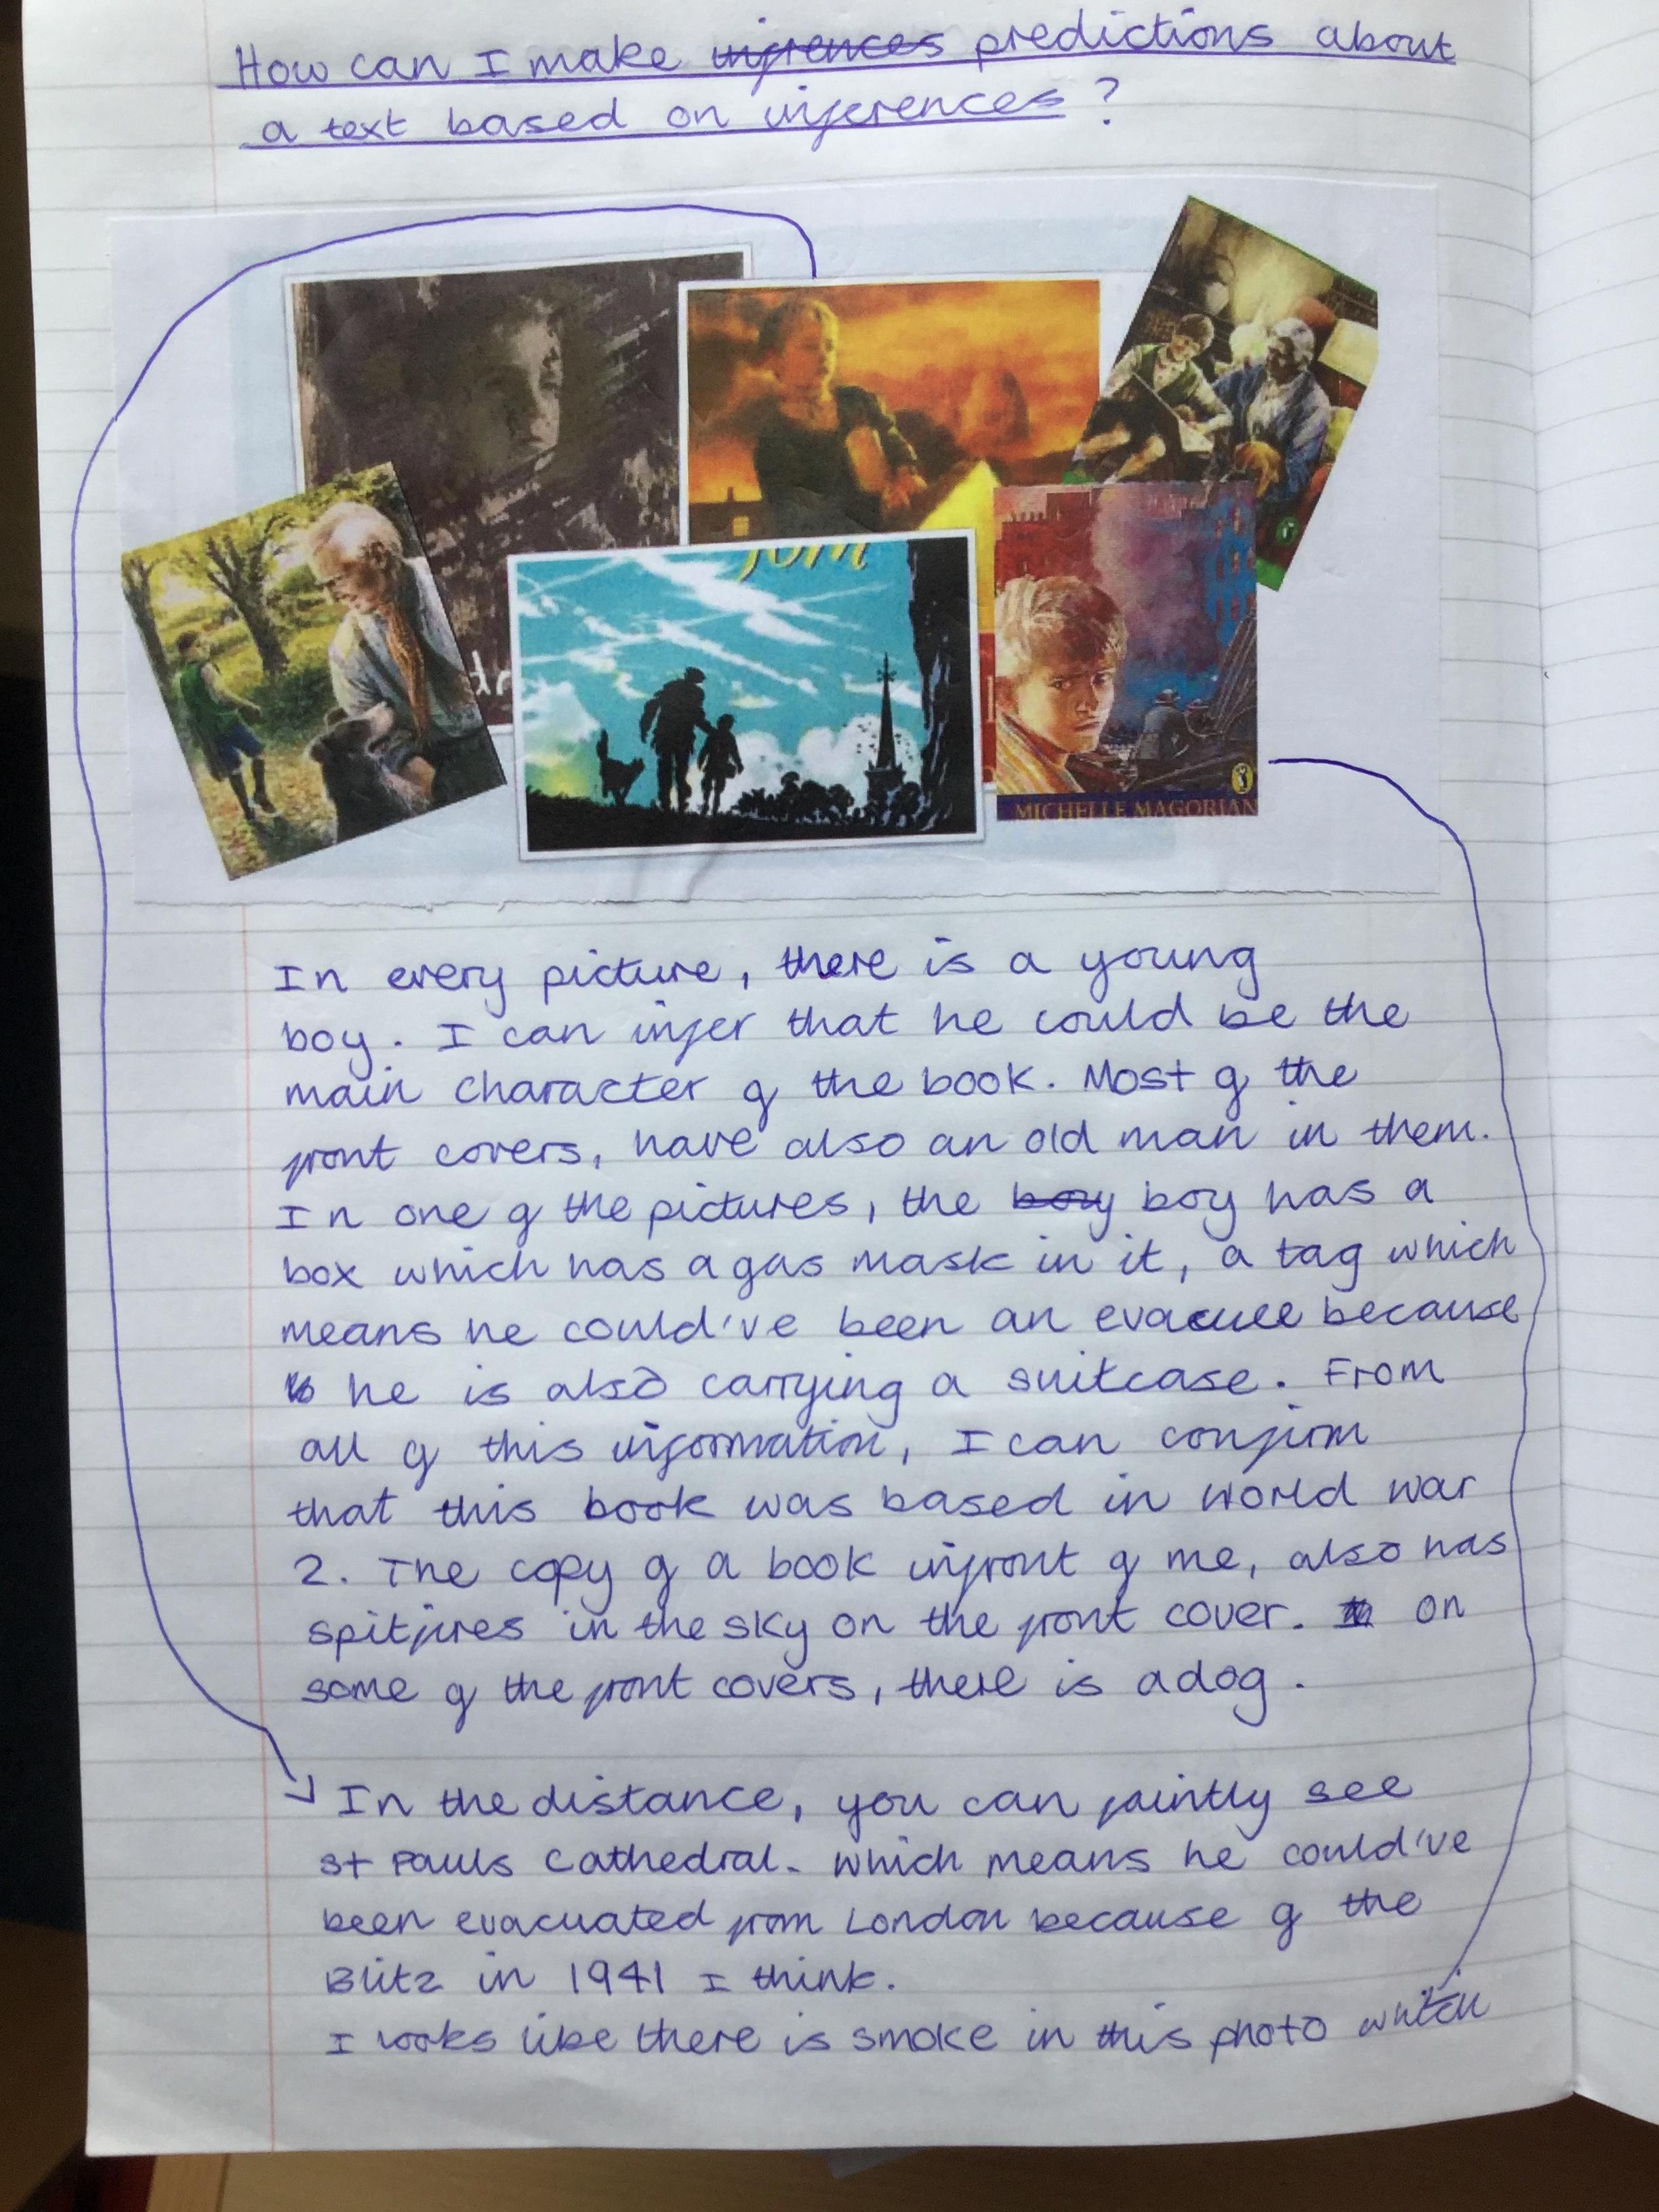 How can I make infrences predictions about
a text based on inferences?
Tom
MICHELLE MAGORIAN
In every picture, there is a young
boy. I can infer that he could be the
main character of the book. Most of the
front covers, have also an old man in them.
In one of the pictures, the boy boy has a
box which has a gas mask in it, a tag which
means he could've been an evacuee because
he is also carrying a suitcase. From
all of this information, I can confirm
that this book was based in world war
2. The copy of a book infront of me, also has
spitfires in the sky on the front cover. on
some of the front covers, there is a dog.
In the distance, you can faintly see
st Pauls Cathedral. which means he could've
been evacuated from London because of the
Blitz in 1941 I think.
I looks like there is smoke in this photo which